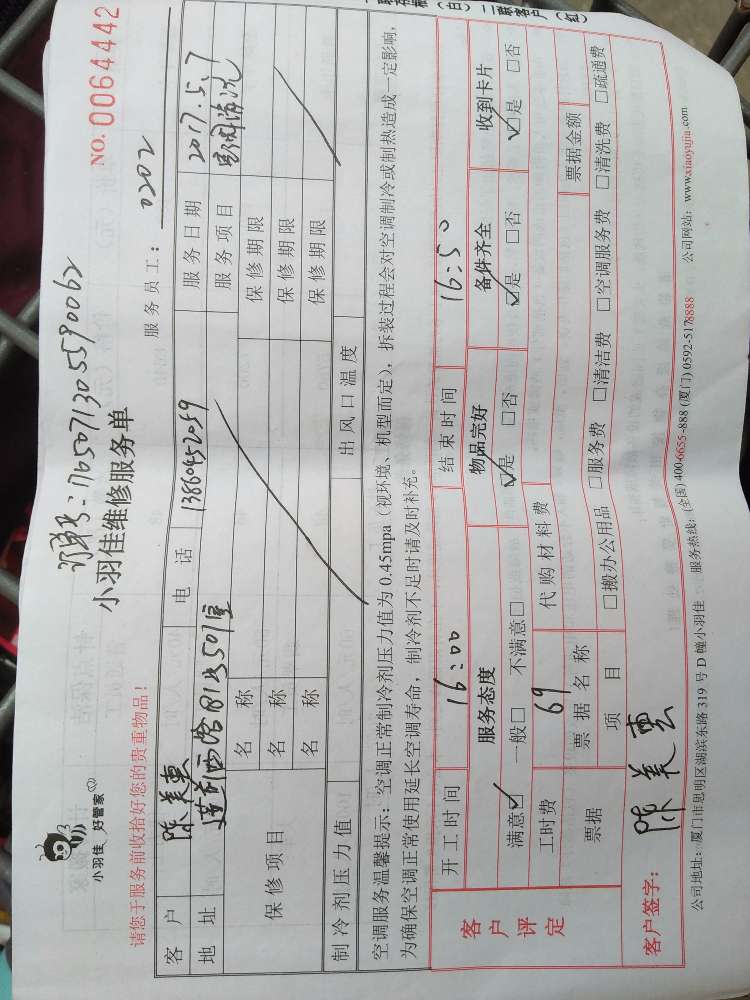 小羽佳 好管家
订单号:170507130559 0062
NO.0064442
小羽佳维修服务单
请您于服务前收拾好您的贵重物品!
服务员工: 0202
客户 陈美惠 电话 13860452059 服务日期 2017.5.7
地址 莲前西路 501室 服务项目 清洗
保修项目 名称 保修期限
名称 保修期限
名称 保修期限
制冷剂压力值 出风口温度
空调服务温馨提示:空调正常制冷剂压力值为0.45mpa(视环境、机型而定),拆装过程会对空调制冷或制热造成一定影响,
为确保空调正常使用延长空调寿命,制冷剂不足时请及时补充。
客户评定
开工时间 16:00 结束时间 16:50
服务态度 物品完好 备件齐全 收到卡片
满意☑ 一般□ 不满意□ ☑是 □否 ☑是 □否 ☑是 □否
工时费 69 代购材料费
票据 票据名称 票据金额
项目 □搬办公用品 □服务费 □清洁费 □空调服务费 □清洗费 □疏通费
客户签字: 陈美云
公司地址:厦门市思明区湖滨东路 319 号 D 幢小羽佳 服务热线:(全国)400-6655-888 (厦门)0592-5178888 公司网站:www.xiaoyujia.com